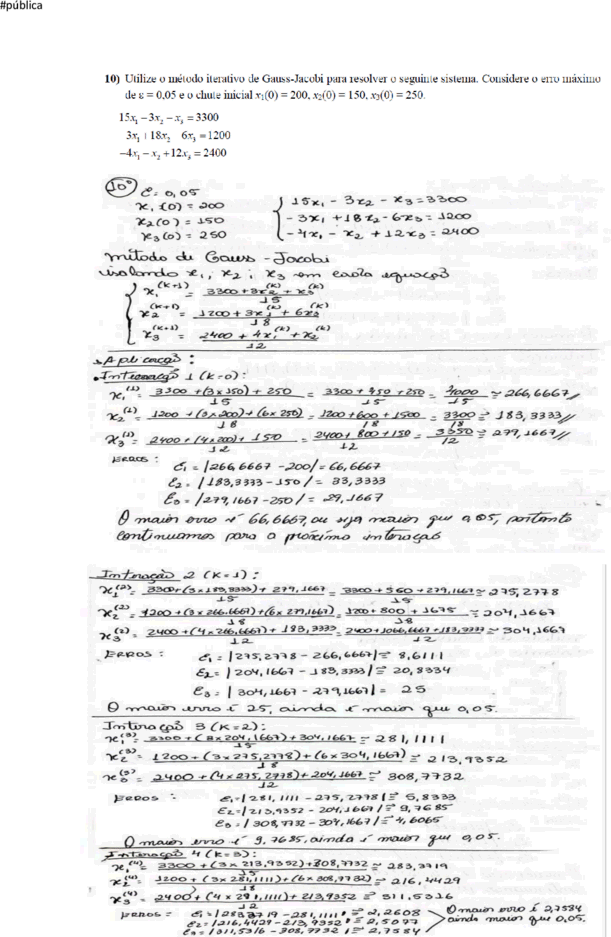 #pública
10) Utilize o método iterativo de Gauss-Jacobi para resolver o seguinte sistema. Considere o erro máximo
de ε = 0,05 e o chute inicial x₁(0) = 200, x₂(0) = 150, x₃(0) = 250.
15x₁ −3x₂ − x₃ = 3300
3x₁ +18x₂ 6x₃ =1200
−4x₁ − x₂ +12x₃ = 2400
10º ε = 0,05
x₁(0) = 200
x₂(0) = 150
x₃(0) = 250
15x₁ - 3x₂ - x₃ = 3300
-3x₁ + 18x₂ - 6x₃ = 1200
-4x₁ - x₂ + 12x₃ = 2400
método de Gauss - Jacobi
isolando x₁, x₂, x₃ em cada equação
x₁^(k+1) = (3300 + 3x₂^(k) + x₃^(k)) / 15
x₂^(k+1) = (1200 + 3x₁^(k) + 6x₃^(k)) / 18
x₃^(k+1) = (2400 + 4x₁^(k) + x₂^(k)) / 12
Aplicação :
Interação 1 (k=0):
x₁^(1) = (3300 + (3x150) + 250) / 15 = (3300 + 450 + 250) / 15 = 4000 / 15 ≅ 266,6667 //
x₂^(1) = (1200 + (3x200) + (6x250)) / 18 = (1200 + 600 + 1500) / 18 = 3300 / 18 ≅ 183,3333 //
x₃^(1) = (2400 + (4x200) + 150) / 12 = (2400 + 800 + 150) / 12 = 3350 / 12 ≅ 279,1667 //
Erros :
ε₁ = |266,6667 - 200| = 66,6667
ε₂ = |183,3333 - 150| = 33,3333
ε₃ = |279,1667 - 250| = 29,1667
O maior erro é 66,6667, ou seja maior que 0,05, portanto
continuamos para a próxima interação
Interação 2 (k=1) :
x₁^(2) = (3300 + (3x183,3333) + 279,1667) / 15 = (3300 + 560 + 279,1667) / 15 ≅ 275,2778
x₂^(2) = (1200 + (3x266,6667) + (6x279,1667)) / 18 = (1200 + 800 + 1675) / 18 ≅ 204,1667
x₃^(2) = (2400 + (4x266,6667) + 183,3333) / 12 = (2400 + 1066,6667 + 183,3333) / 12 ≅ 304,1667
Erros :
ε₁ = |275,2778 - 266,6667| ≅ 8,6111
ε₂ = |204,1667 - 183,3333| ≅ 20,8334
ε₃ = |304,1667 - 279,1667| = 25
O maior erro é 25, ainda é maior que 0,05.
Interação 3 (k=2) :
x₁^(3) = (3300 + (3x204,1667) + 304,1667) / 15 ≅ 281,1111
x₂^(3) = (1200 + (3x275,2778) + (6x304,1667)) / 18 ≅ 213,9352
x₃^(3) = (2400 + (4x275,2778) + 204,1667) / 12 ≅ 308,7732
Erros :
ε₁ = |281,1111 - 275,2778| ≅ 5,8333
ε₂ = |213,9352 - 204,1667| ≅ 9,7685
ε₃ = |308,7732 - 304,1667| ≅ 4,6065
O maior erro é 9,7685, ainda é maior que 0,05.
Interação 4 (k=3) :
x₁^(4) = (3300 + (3x213,9352) + 308,7732) / 15 ≅ 283,3719
x₂^(4) = (1200 + (3x281,1111) + (6x308,7732)) / 18 ≅ 216,4429
x₃^(4) = (2400 + (4x281,1111) + 213,9352) / 12 ≅ 311,5316
Erros = ε₁ = |283,3719 - 281,1111| ≅ 2,2608
ε₂ = |216,4429 - 213,9352| ≅ 2,5077
ε₃ = |311,5316 - 308,7732| ≅ 2,7584
O maior erro é 2,7584
ainda maior que 0,05.